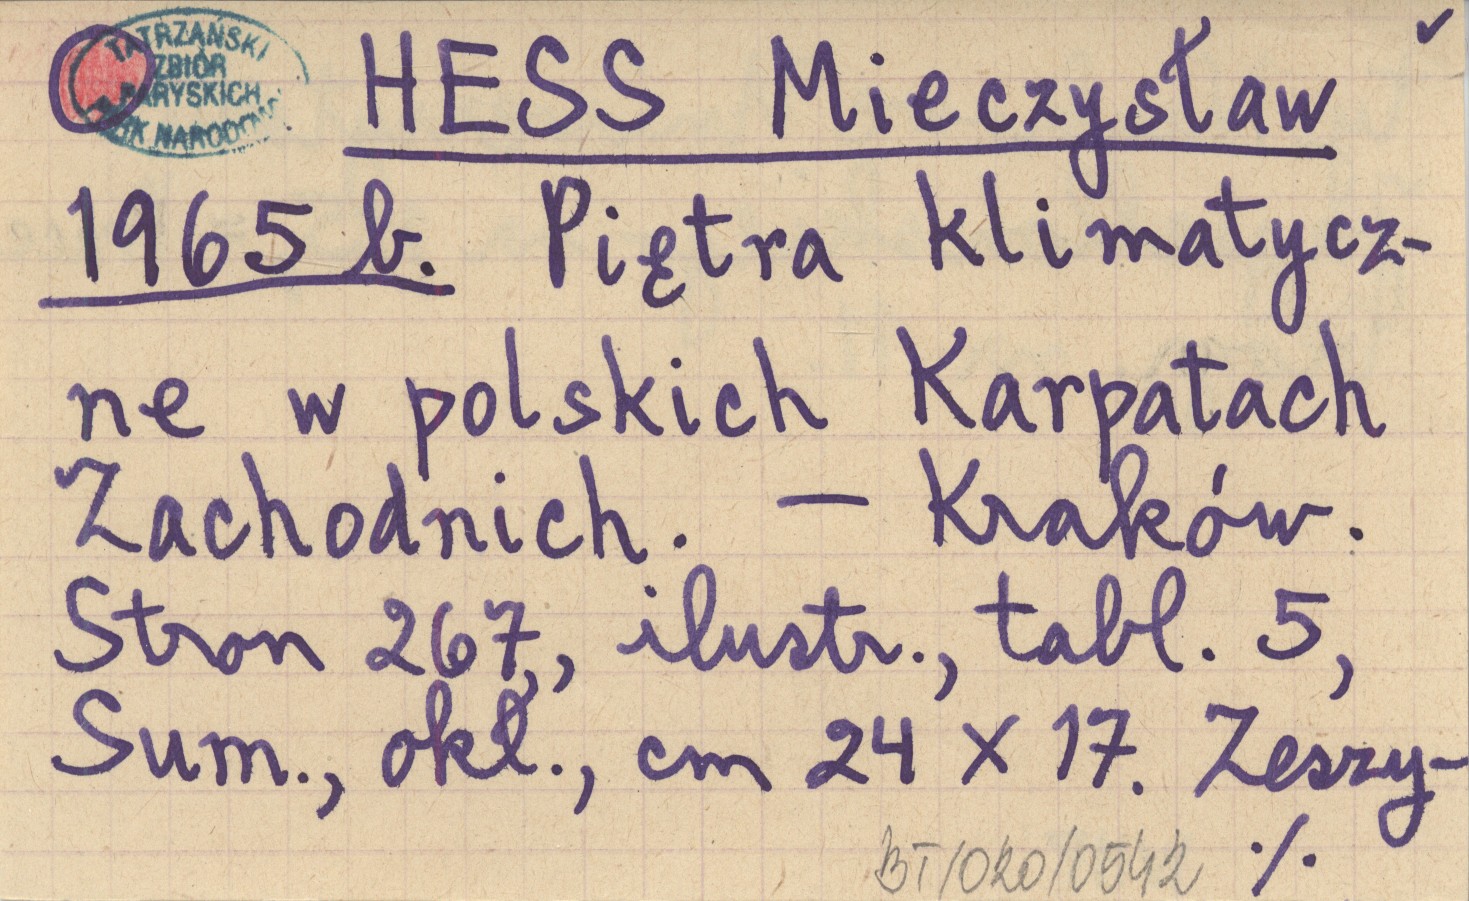 TATRZAŃSKI
ZBIÓR
PARYSKICH
NARODOWY
HESS Mieczysław
1965 b. Piętra klimatycz-
ne w polskich Karpatach
Zachodnich. — Kraków.
Stron 267, ilustr., tabl. 5,
Sum., okł., cm 24 x 17. Zeszy-
BT/020/0542 ./.